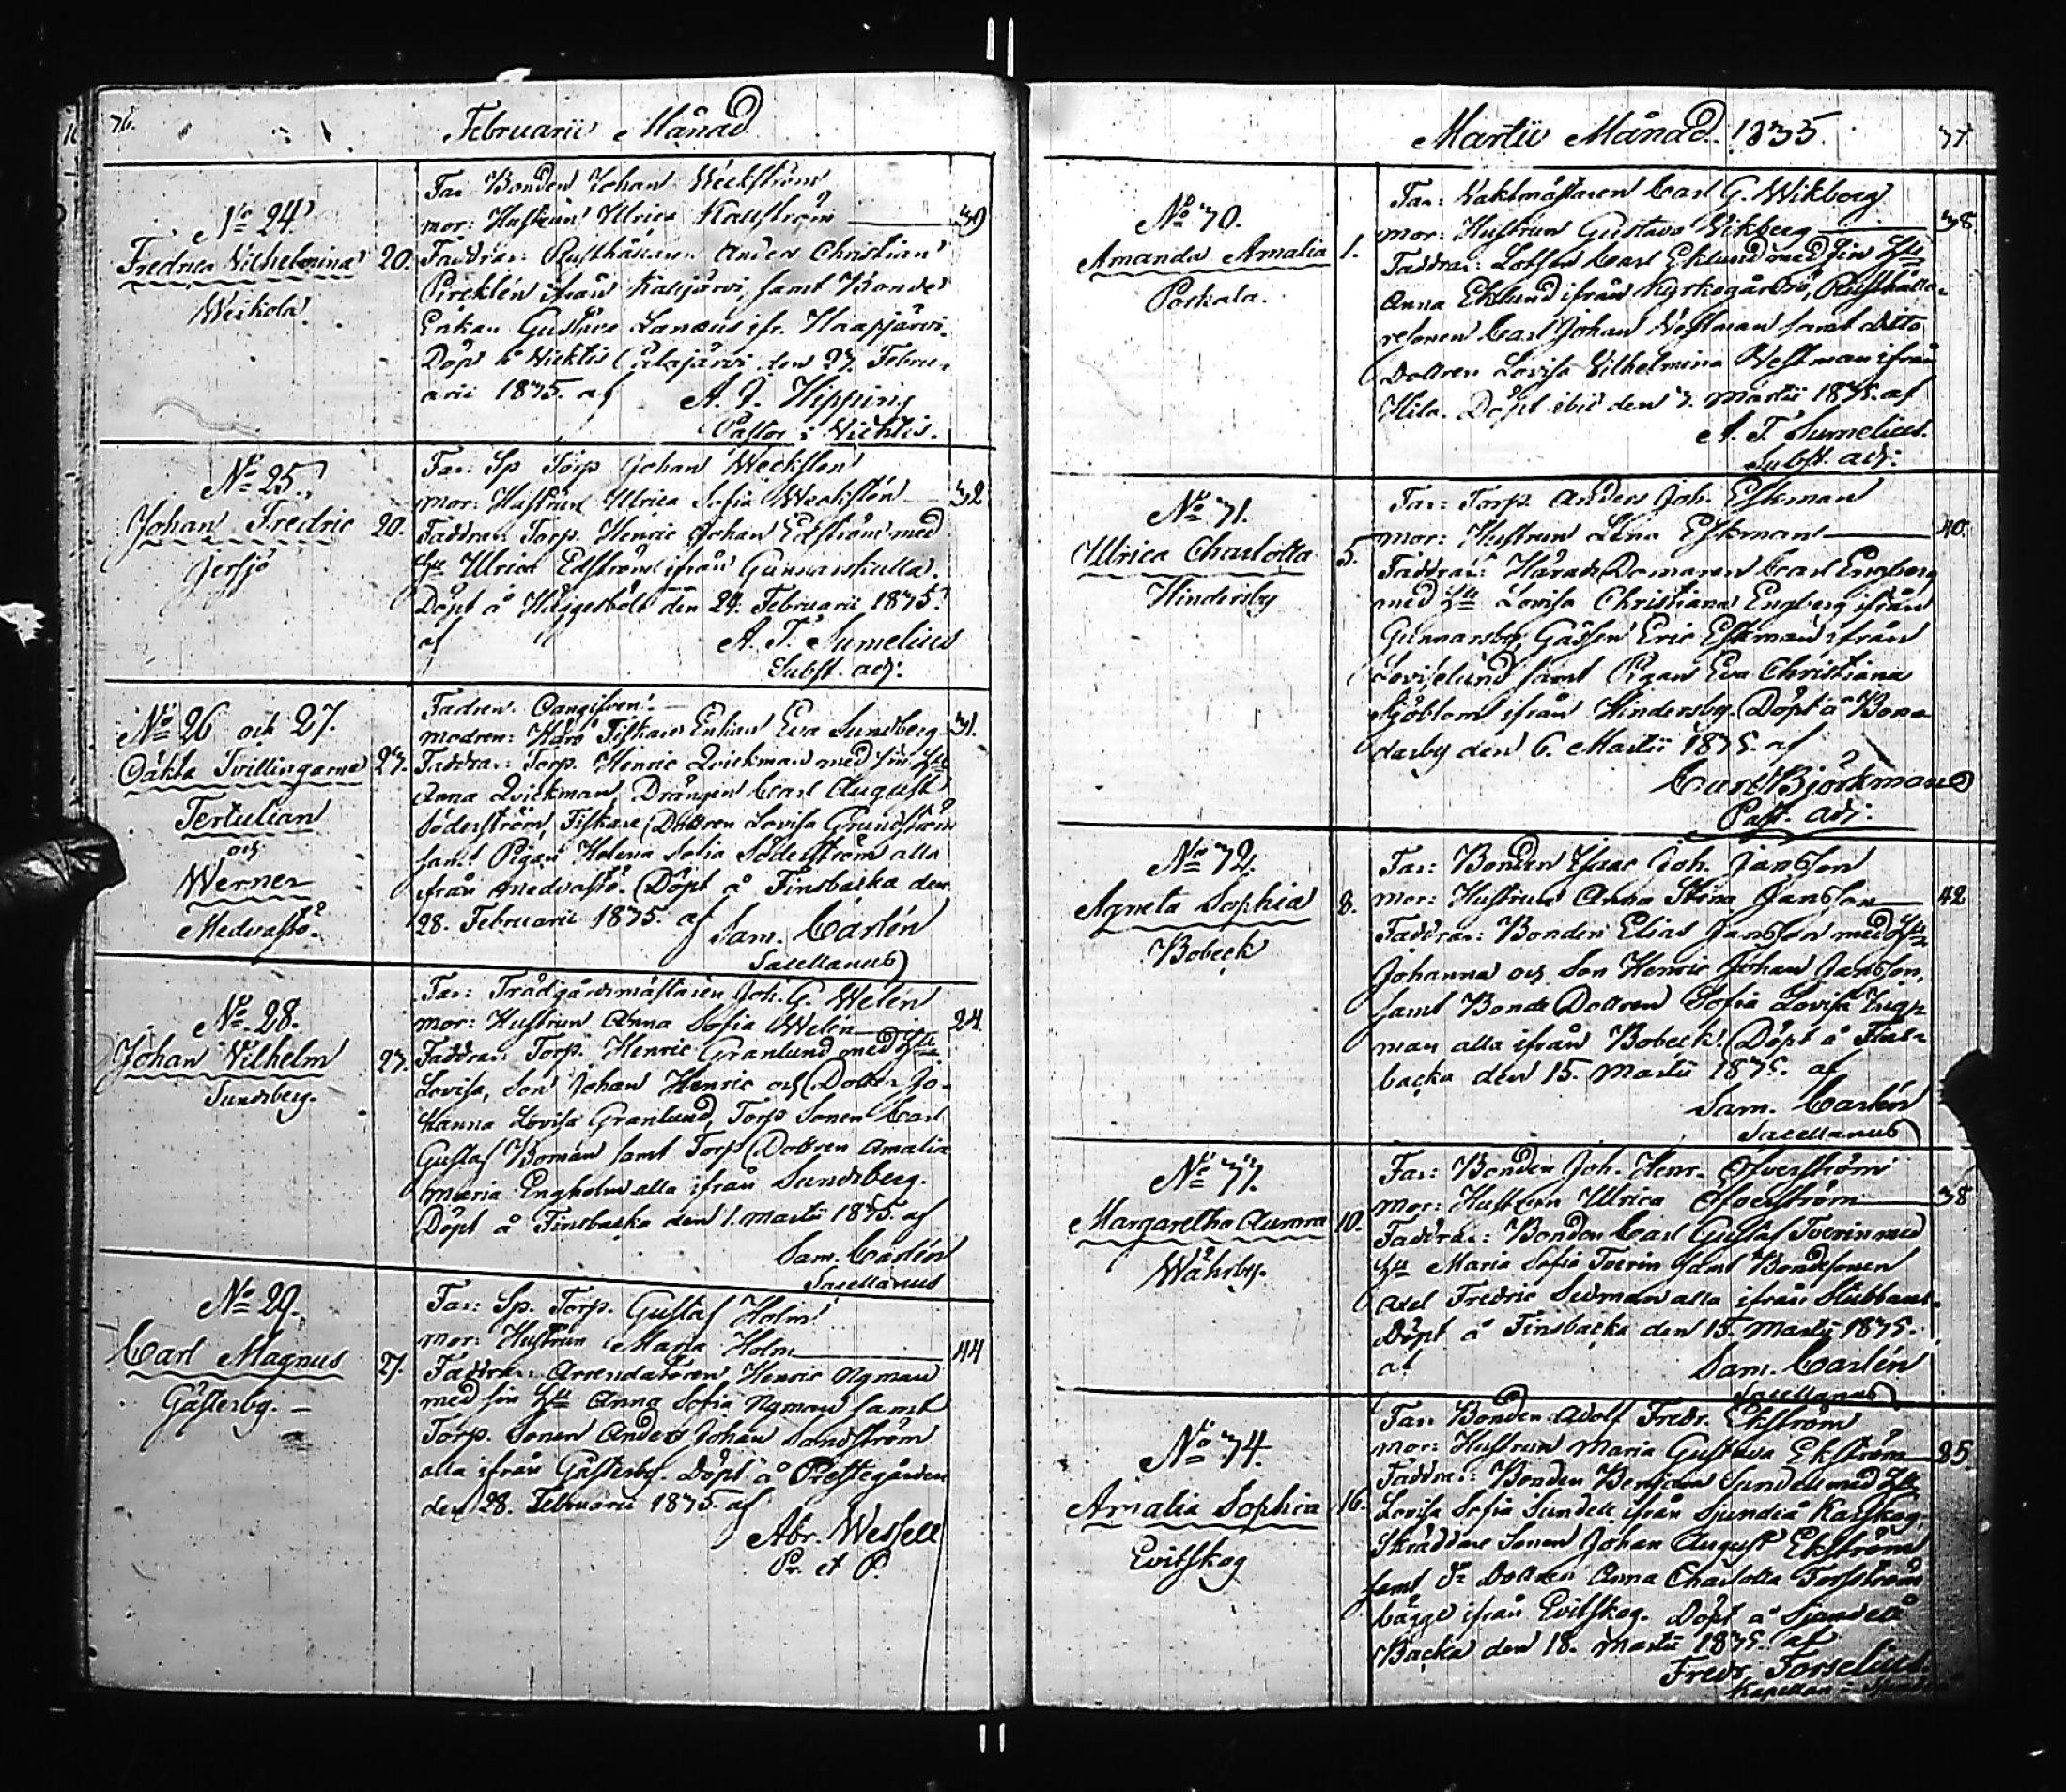 76.
Februarii Månad
No 24.
Fredrica Vilhelmina 20.
Weikola
Far Bonden Johan Weckström
mor: Hustrun Ulrica Kallström 39
Faddrar: Rusthållaren Anders Christian
Pireklén ifrån Kalljärvi, samt Bonde
Enkan Gustava Lanæus ifr. Haapjärvi.
Döpt å Wichtis Oilajärvi den 27. Febru-
arii 1835. af A. J. Hipping
Pastor i Wichtis.
No 25.
Johan Fredric 20.
Jersjö
Far: Sp Torp Johan Weckslén
mor: Hustrun Ulrica Sofia Weckslén 32
Faddrar: Torp. Henric Johan Edström med
Hu Ulrica Edström ifrån Gunnarskulla.
Döpt å Häggesböle den 24. Februarii 1835.
af A. T. Sumelius
Subst. adj.
No 26 och 27.
Oäkta Tvillingarna 27.
Tertulian
och
Werner
Medvastö.
Fadren: Oangifven.
modren: Fiskare Enkan Eva Sundberg 31.
Faddrar: Torp. Henric Qvickman med sin Hu
Anna Qvickman, Drängen Carl August
Söderström, Fiskare Dottren Lovisa Grundström
samt Pigan Helena Sofia Söderström alla
ifrån Medvastö. Döpt å Finsbacka den
28. Februarii 1835. af Sam. Carlén
Sacellanus
No 28.
Johan Vilhelm 27.
Sundsberg.
Far: Trädgårdsmästaren Joh. G. Welén
mor: Hustrun Anna Sofia Welén 24.
Faddrar: Torp. Henric Granlund med Hu
Lovisa, Son Johan Henric och Dotter Jo-
hanna Lovisa Granlund, Torp Sonen Carl
Gustaf Boman samt Torp Dottren Amalia
Maria Engholm alla ifrån Sundsberg.
Döpt å Finsbacka den 1. Martii 1835. af
Sam. Carlén
Sacellanus
No 29.
Carl Magnus 27.
Gästerby.
Far: Sp. Torp. Gustaf Holm
mor: Hustrun Maria Holm 44
Faddrar: Arrendatoren Henric Nyman
med sin Hu Anna Sofia Nyman samt
Torp. Sonen Anders Johan Sandström
alla ifrån Gästerby. Döpt å Prestegården
den 28. Februarii 1835. af
Abr. Wessell
Pr. et P.
Martii Månad 1835. 77.
No 30.
Amanda Amalia 1.
Porkala.
Far: Vaktmästaren Carl G. Wikberg
mor: Hustrun Gustava Wikberg 38.
Faddrar: Lotsen Carl Eklund med sin Hu
Anna Eklund ifrån Kyrkogårdsö, Rusthålla-
resonen Carl Johan Westman samt ditto
Dottren Lovisa Vilhelmina Westman ifrån
Hila. Döpt ibid den 3. Martii 1835. af
A. T. Sumelius.
Subst. adj:
No 31.
Ulrica Charlotta 5.
Hindersby
Far: Torp. Anders Joh. Eskman
mor: Hustrun Lena Eskman 40.
Faddrar: Härads Domaren Carl Engberg
med Hu Lovisa Christiana Engberg ifrån
Gunnarsby, Gossen Eric Eskman ifrån
Lovisælund samt Pigan Eva Christiana
Sjöblom ifrån Hindersby. Döpt å Bona-
darby den 6. Martii 1835. af
Carl Björkman
Past. adj:
No 32.
Agneta Sophia 8.
Bobeck
Far: Bonden Isaac Joh. Jansson
mor: Hustrun Anna Stina Jansson 42
Faddrar: Bonden Elias Jansson med Hu
Johanna och Son Henric Johan Jansson,
samt Bonde Dottren Sofia Lovisa Engs-
man alla ifrån Bobeck. Döpt å Fins-
backa den 15. Martii 1835. af
Sam. Carlén
Sacellanus
No 33.
Margaretha Aurora 10.
Wåhrby.
Far: Bonden Joh. Henr. Öfverström
mor: Hustrun Ulrica Öfverström 38
Faddrar: Bonden Carl Gustaf Tverin med
Hu Maria Sofia Tverin samt Bondesonen
Axel Fredric Sidman alla ifrån Stubbans.
Döpt å Finsbacka den 15. Martii 1835.
af Sam. Carlén
Sacellanus
No 34.
Amalia Sophia 16.
Evitskog
Far: Bonden Adolf Fredr. Ekström
mor: Hustrun Maria Gustava Ekström 25.
Faddrar: Bonden Benjam Sundell med Hu
Lovisa Sofia Sundell ifrån Sjundeå Karskog,
Skräddare Sonen Johan August Ekström
samt Do Dottren Anna Charlotta Forsström
bägge ifrån Evitskog. Döpt å Sjundeå
Backa den 18. Martii 1835. af
Fredr. Forselius.
Kapellan i